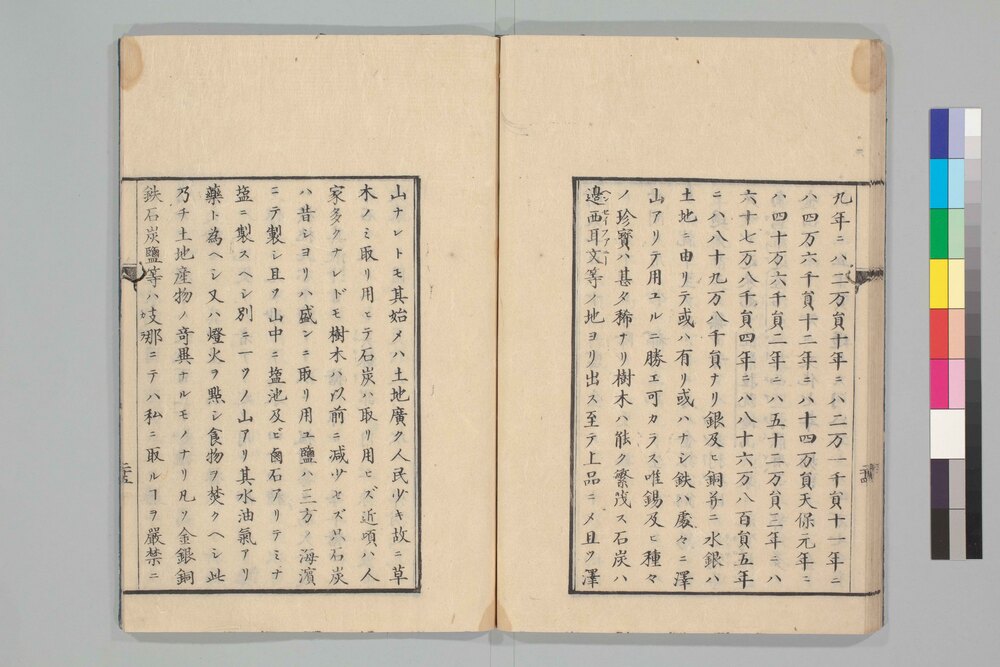 九年ニハ二万貟十年ニハ二万一千貟十一年ニ
ハ四万六千貟十二年ニハ十四万貟天保元年ニ
ハ四十万六千貟二年ニハ五十二万貟三年ニハ
六十七万八千貟四年ニハ八十六万八百貟五年
ニハ八十九万八千貟ナリ銀及ヒ銅并ニ水銀ハ
土地ニ由リテ或ハ有リ或ハナシ鉄ハ處々ニ澤
山アリテ用ユルニ勝エ可カラス唯錫及ヒ種々
ノ珍寳ハ甚タ稀ナリ樹木ハ能ク繁茂ス石炭ハ
邉西耳文等ノ地ヨリ出ス至テ上品ニメ且ツ澤
山ナレトモ其始メハ土地廣ク人民少キ故ニ草
木ノミ取リ用ヒテ石炭ハ取リ用ヒズ近頃ハ人
家多クナレドモ樹木ハ以前ニ减少セズ只石炭
ハ昔シヨリハ盛ンニ取リ用ユ鹽ハ三方ノ海濵
ニテ製シ且ツ山中ニ塩池及ビ鹵石アリテミナ
塩ニ製スヘシ別ニ一ツノ山アリ其水油氣アリ
藥ト為ヘシ又ハ燈火ヲ點シ食物ヲ焚クヘシ此
乃チ土地産物ノ竒異ナルモノナリ凡ソ金銀銅
鉄石炭鹽等ハ支那ニテハ私ニ取ルヿヲ嚴禁ニ